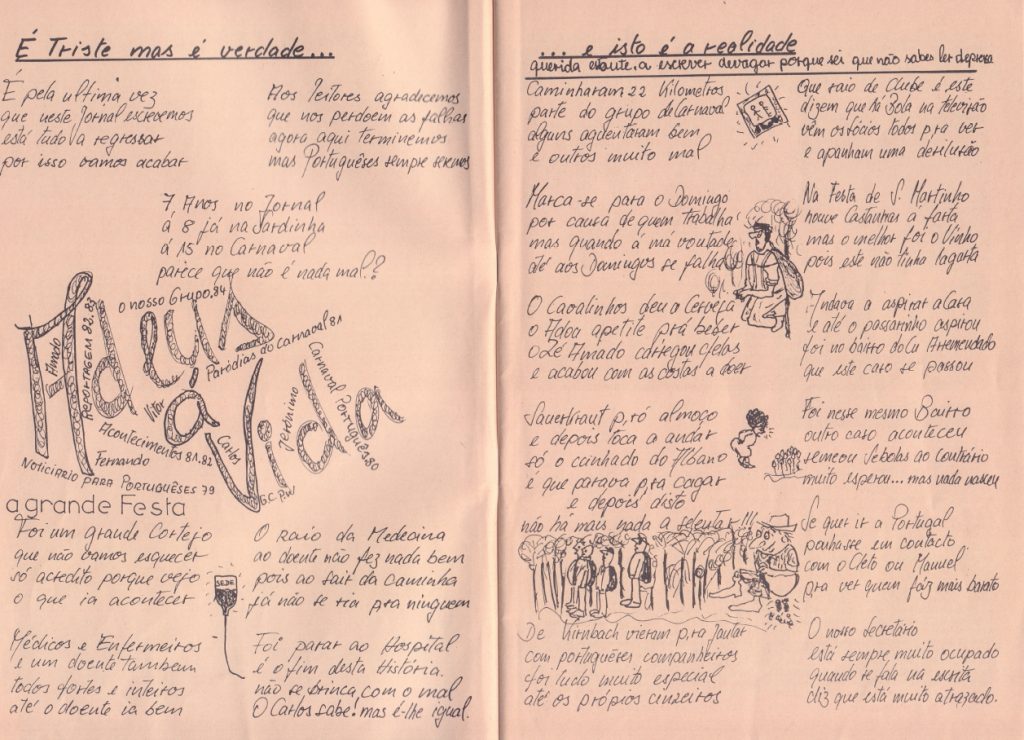 É Triste mas é verdade...
É pela ultima vez
que neste Jornal escrevemos
está tudo a regressar
por isso vamos acabar
Aos leitores agradecemos
que nos perdoem as falhas
agora aqui terminemos
mas Portuguêses sempre seremos
7 Anos no Jornal
á 8 já na Sardinha
á 15 no Carnaval
parece que não é nada mal.?
o nosso Grupo.84
REPORTAGEM 82.83
Paródias do carnaval 81
Carnaval Português.80
Adeus
á
Vida
Amado
Vitor
Acontecimentos 81.82
Carlos
Jerónimo
Fernando
NOTICIARIO PARA PORTUGUÊSES 79
G.C.P.W
a grande Festa
Foi um grande Cortejo
que não vamos esquecer
só acredito porque vejo
o que ia acontecer
Médicos e Enfermeiros
e um doente tambem
todos fortes e inteiros
até o doente ia bem
SEDE
O raio da Medecina
ao doente não fez nada bem
pois ao sair da caminha
já não se ria pra ninguem
Foi parar ao Hospital
é o fim desta História.
não se brinca com o mal
O Carlos sabe! mas é-lhe igual.
... e isto é a realidade
querida a escrever devagar porque sei que não sabes ler depressa
Caminharam 22 Kilometros
parte do grupo de Carnaval
alguns aguentaram bem
e outros muito mal
Marca-se para o Domingo
por causa de quem trabalha
mas quando á má vontade
até aos Domingos se falha
O Cavalinhos deu a Cerveja
o Adoa apetite prá beber
o Zé Amado carregou c/elas
e acabou com as costas a doer
Sauerkraut p,ró almoço
e depois toca a andar
só o cunhado do Albano
é que parava prá cagar
e depois disto
não há mais nada a relatar!!!
De Kirnbach vieram p,ra Jantar
com portuguêses companheiros
foi tudo muito especial
até os próprios cinzeiros
Que raio de Clube é este
dizem que há Bola na televisão
vêm os sócios todos pra ver
e apanham uma desilusão
Na Festa de S. Martinho
houve Castanhas á farta
mas o melhor foi o Vinho
pois este não tinha lagarta
Andava a aspirar a Casa
e até o passarinho aspirou
foi no bairro do Cu Arremendado
que este caso se passou
Foi nesse mesmo Bairro
outro caso aconteceu
semeou Sebolas ao Contrário
muito esperou... mas nada nasceu
Se quer ir a Portugal
ponha-se em contacto
com o Cleto ou Manuel
pra ver quem faiz mais barato
O nosso Secretário
está sempre muito ocupado
quando se fala na escrita
diz que está muito atrazado.